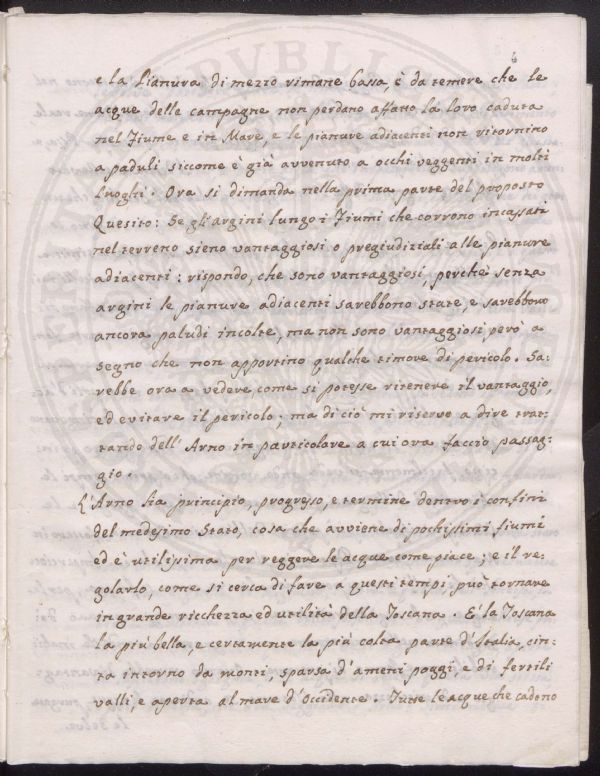 e la Pianura di mezzo rimane bassa, è da temere che le
acque delle campagne non perdano affatto la loro caduta
nel Fiume e in Mare, e le pianure adiacenti non ritornino
a paduli siccome è già avvenuto a occhi veggenti in molti
Luoghi. Ora si dimanda nella prima parte del proposto
Quesito: Se gl'argini lungo i Fiumi che corrono incassati
nel terreno sieno vantaggiosi o pregiudiziali alle pianure
adiacenti: rispondo, che sono vantaggiosi, perchè senza
argini le pianure adiacenti sarebbono state, e sarebbono
ancora paludi incolte, ma non sono vantaggiosi però a
segno che non apportino qualche timore di pericolo. Sa-
rebbe ora a vedere, come si potesse ritenere il vantaggio,
ed evitare il pericolo; ma di ciò mi riservo a dire trat-
tando dell'Arno in particolare a cui ora faccio passag-
gio.
L'Arno ha principio, progresso, e termine dentro i confini
del medesimo Stato, cosa che avviene di pochissimi fiumi
ed è utilissima per reggere le acque come piace; e il re-
golarlo, come si cerca di fare a questi tempi, può tornare
in grande ricchezza ed utilità della Toscana. È la Toscana
la più bella, e certamente la più colta parte d'Italia, cin-
ta intorno da monti, sparsa d'ameni poggi, e di fertili
valli, e aperta al mare d'Occidente. Tutte le acque che cadono